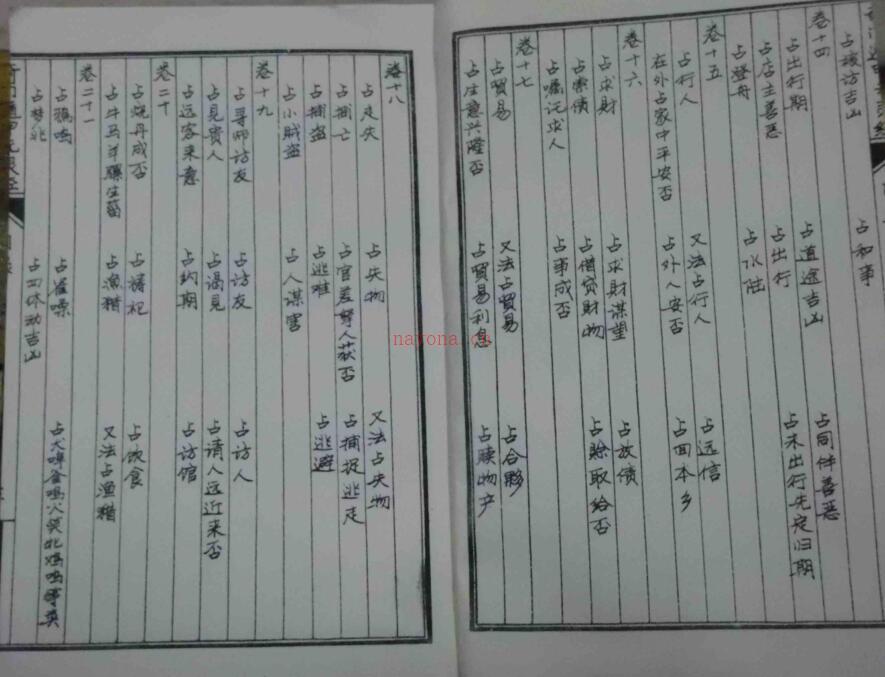 占被访吉凶
占和事
卷十四
占出行期
占道途吉凶
占同伴善恶
占店主善恶
占出行
占未出行先定归期
占登舟
占水陆
卷十五
占行人
又法占行人
占远信
在外占家中平安否
占外人安否
占回本乡
卷十六
占求财
占求财谋望
占放债
占索债
占借贷财物
占赊取给否
占嘱托求人
占事成否
卷十七
占贸易
又法占贸易
占合夥
占生意兴隆否
占贸易利息
占赎物产
卷十八
占走失
占失物
又法占失物
占捕亡
占官差拏人获否
占捕捉逃走
占捕盗
占逃难
占逃避
占小贼盗
占人谋害
卷十九
占寻师访友
占访友
占访人
占见贵人
占谒见
占请人远近来否
占远客来意
占约期
占访馆
卷二十
占烧丹成否
占祷祀
占饮食
占牛马羊骡生畜
占渔猎
又法占渔猎
卷二十一
占鸦鸣
占雀噪
占犬嗥釜鸣火
占梦兆
占四体动吉凶
nayona.cn